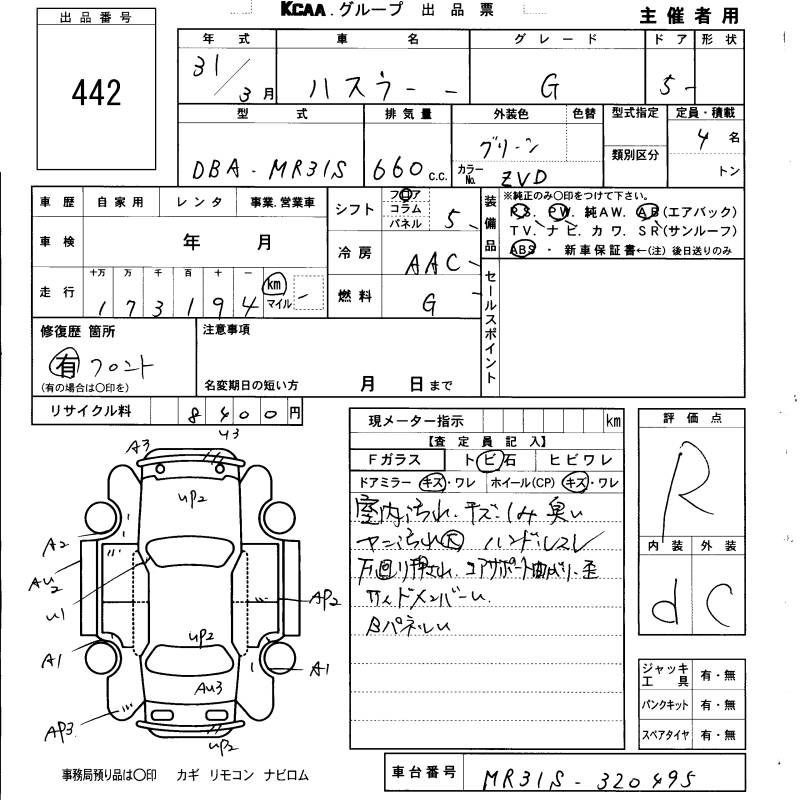 KCAA.グループ 出品票
主催者用
出品番号
442
年式 車名 グレード ドア 形状
31/3月 ハスラー G 5
型式 排気量 外装色 色替 型式指定 定員・積載
DBA-MR31S 660c.c. グリーン 4名
類別区分
カラーNo. ZVD トン
車歴 自家用 レンタ 事業.営業車
シフト フロア コラム パネル 5
装備品
※純正のみ○印をつけて下さい。
PS. PW. 純AW. AB(エアバック)
TV. ナビ. カワ. SR(サンルーフ)
ABS・新車保証書←(注)後日送りのみ
車検 年 月
冷房 AAC
走行 十万 万 千 百 十 一
173194 km マイル
燃料 G
セールスポイント
修復歴 箇所
有 フロント
(有の場合は○印を)
注意事項
名変期日の短い方 月 日まで
リサイクル料 8400円
現メーター指示 km
【査定員記入】
Fガラス トビ石 ヒビワレ
ドアミラー キズ・ワレ ホイール(CP) キズ・ワレ
室内汚れ.キズ.シミ 臭い
ヤニ汚れ大 ハンドルスレ
下回り押され.コアサポート曲がり.歪
サイドメンバーu.
Bパネルu
評価点
R
内装 外装
d C
ジャッキ工具 有・無
パンクキット 有・無
スペアタイヤ 有・無
A3
U3
UP2
A2
AU2
U1
AP2
UP2
A1
A1
AU3
AP3
UP2
事務局預り品は○印 カギ リモコン ナビロム
車台番号 MR31S-320495